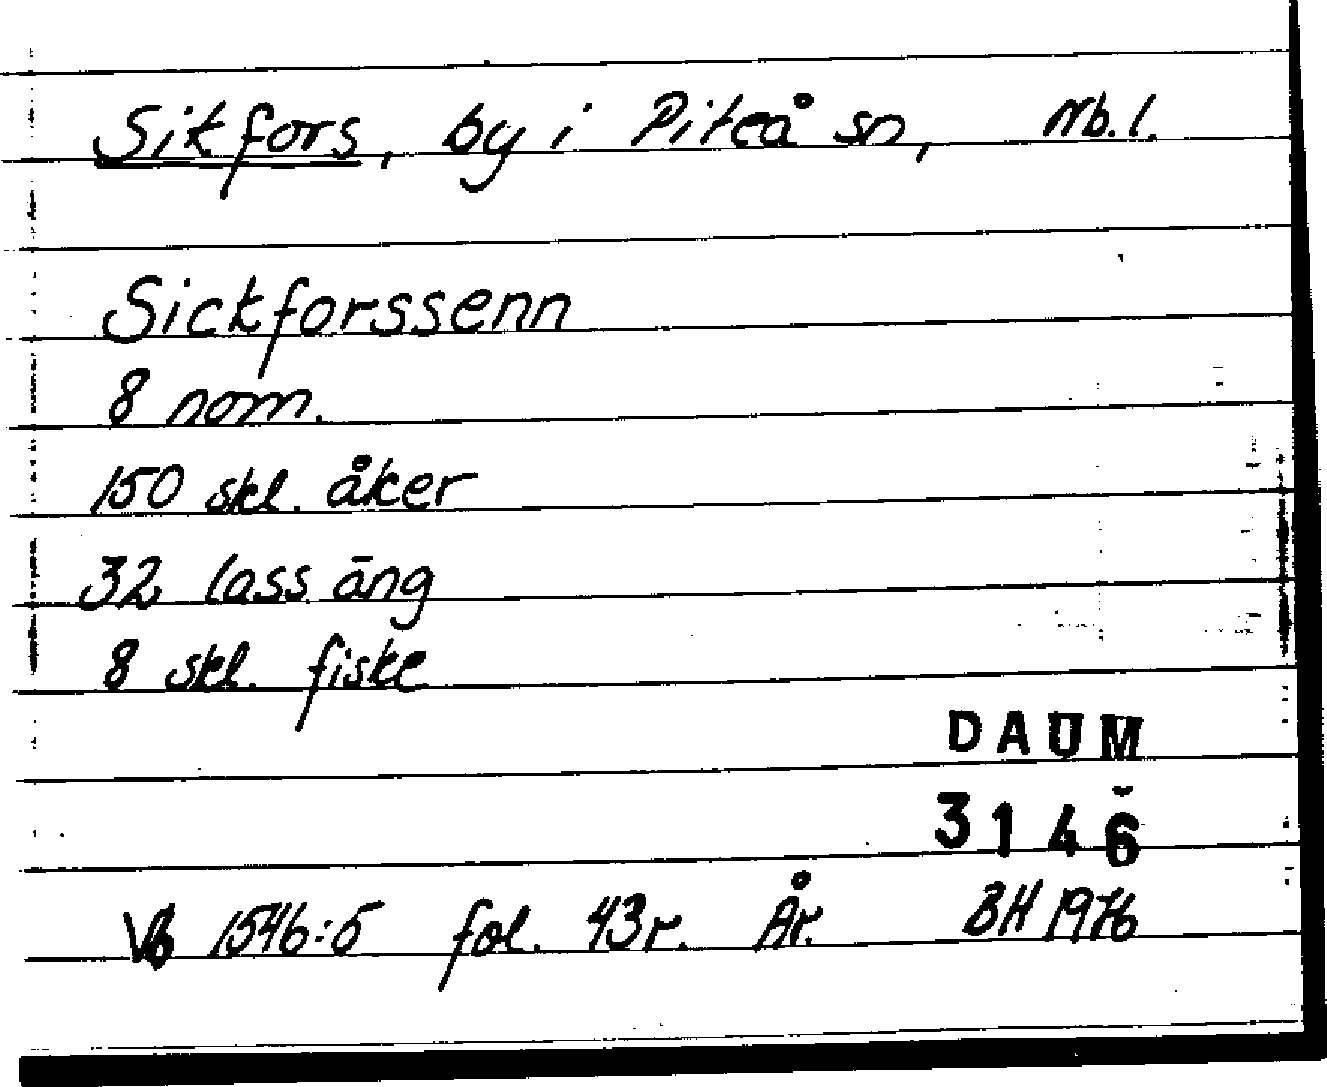 Sikfors, by i Piteå sn, Nb. l.
Sickforssenn
8 nom.
150 skl. åker
32 lass äng
8 skl. fiske
DAUM
3146
Vb 1546:5 fol. 43r. År. BH 1976